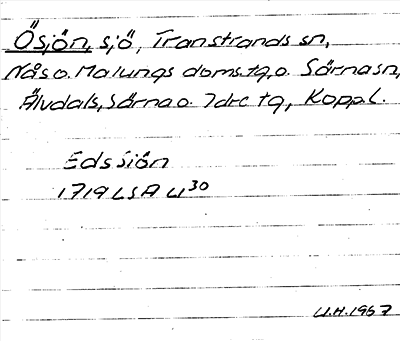 Ösjön, sjö, Transtrands sn,
Nås o. Malungs doms. tg, o. Särna sn,
Älvdals, Särna o. Idre tg, Kopp.l.
Eds Siön
1719 LSA U30
U.H. 1967